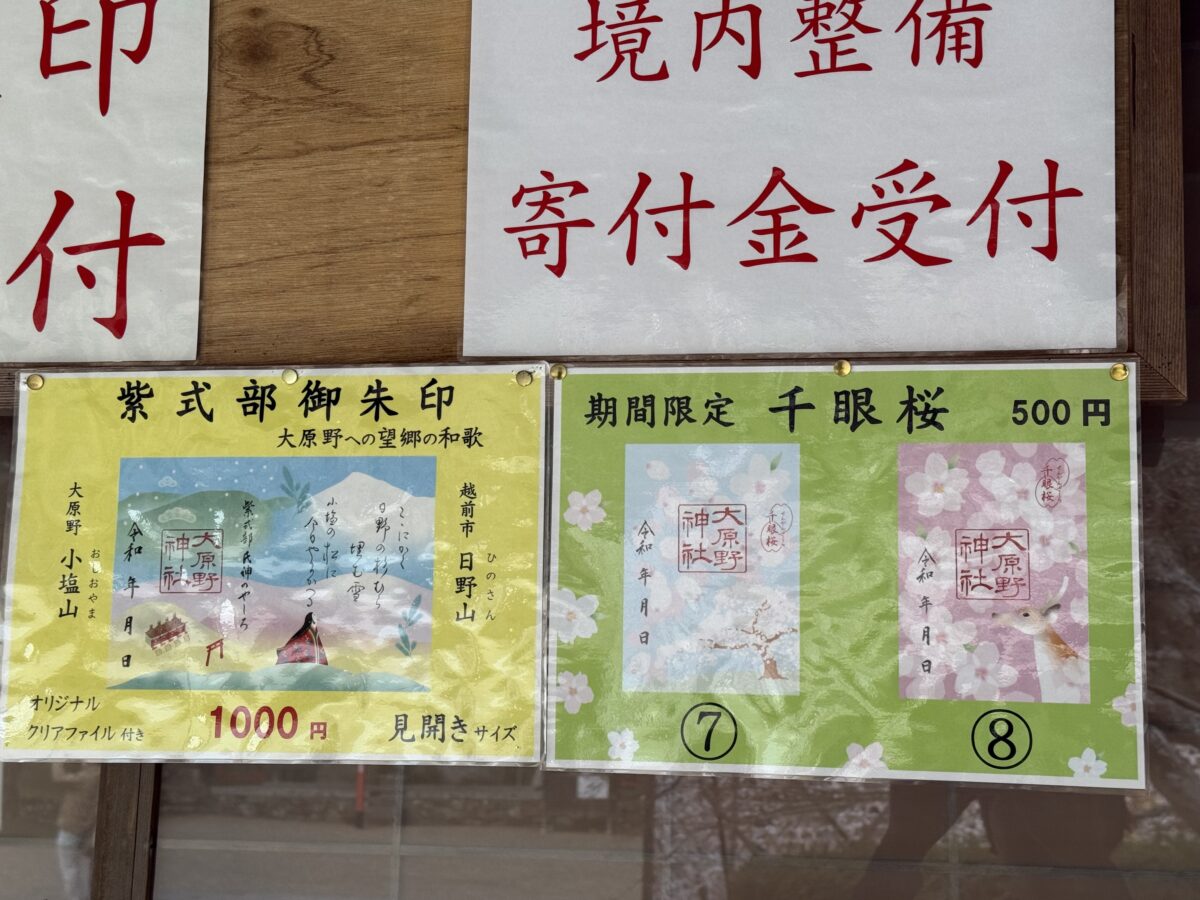 印
付
境内整備
寄付金受付
紫式部御朱印
大原野への望郷の和歌
大原野 小塩山
おしおやま
越前市 日野山
ひのさん
ここにかく
日野の杉むら
埋む雪
小塩の松に
今日やまがへる
紫式部氏神のやしろ
大原野
神社
令和 年 月 日
オリジナル
クリアファイル付き
1000円
見開きサイズ
期間限定 千眼桜 500円
千眼桜
大原野
神社
令和 年 月 日
⑦
千眼桜
大原野
神社
令和 年 月 日
⑧